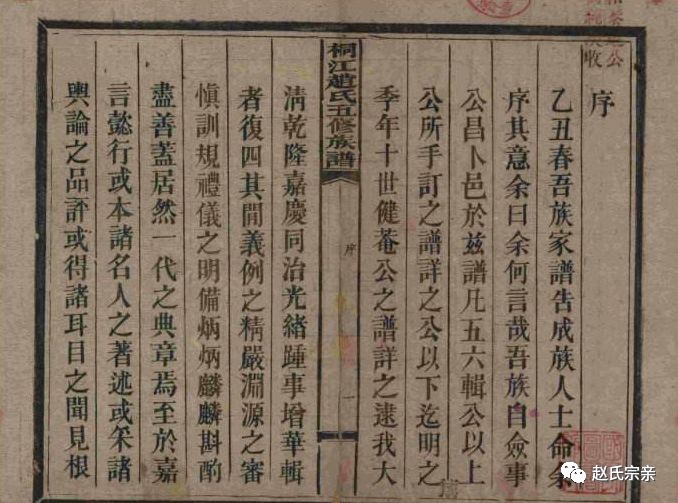 序
乙丑春吾族家譜告成族人士命余
序其意余曰余何言哉吾族自僉事
公昌卜邑於茲譜凡五六輯公以上
公所手訂之譜詳之公以下迄明之
季年十世健菴公之譜詳之逮我大
桐江趙氏五修族譜
序
一
清乾隆嘉慶同治光緒踵事增華輯
者復四其開義例之精嚴淵源之審
愼訓規禮儀之明備炳炳麟麟斟酌
盡善蓋居然一代之典章焉至於嘉
言懿行或本諸名人之著述或采諸
輿論之品評或得諸耳目之聞見根
赵氏宗亲